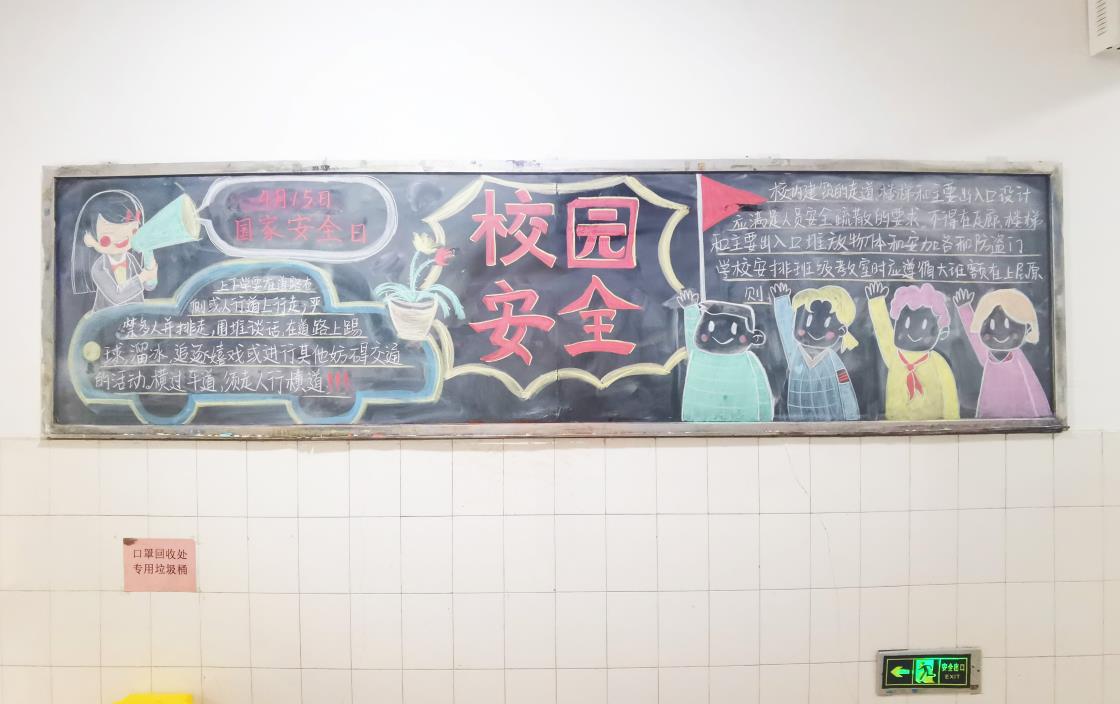 4月15日
国家安全日
上下学要在道路右
侧或人行道上行走,严
禁多人并排走,用堆谈话,在道路上踢
球、溜冰、追逐嬉戏或进行其他妨碍交通
的活动,横过车道,须走人行横道!!!
校园
安全
校内建筑的走道、楼梯和主要出入口设计
应满足人员安全疏散的要求,不得在瓦廊、楼梯
和主要出入口堆放物体和安
和防盗门
学校安排班级教室时应尊循大班额在上层原
则
口罩回收处
专用垃圾桶
安全出口
EXIT